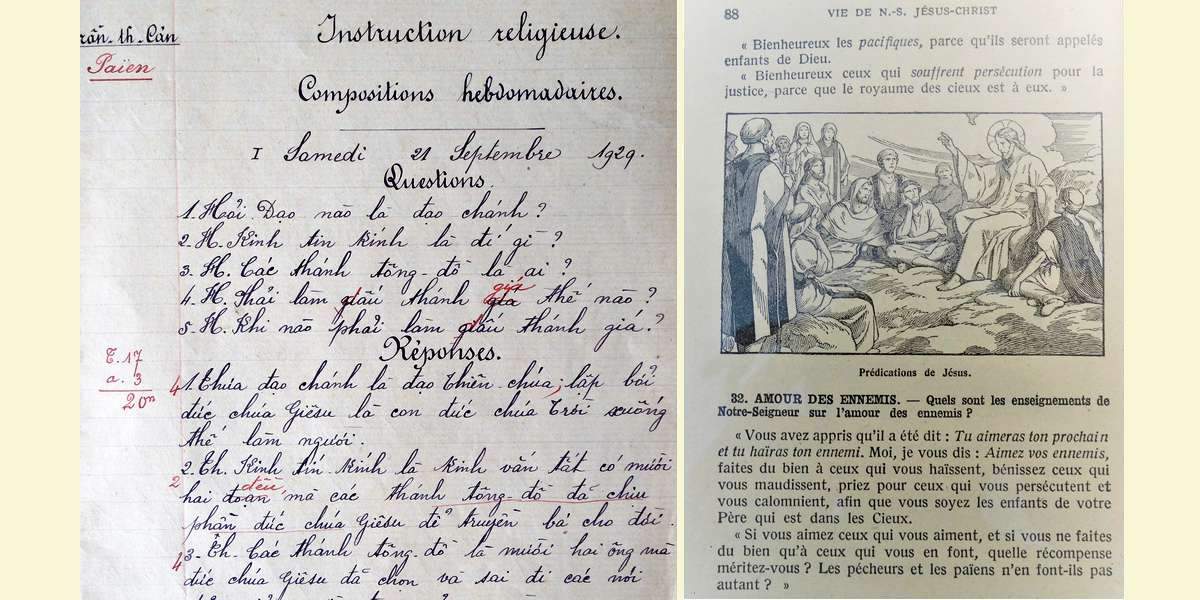 rần. th. Cần
Païen
Instruction religieuse.
Compositions hebdomadaires.
I Samedi 21 Septembre 1929.
Questions
1. Hỏi. Đạo nào là đạo chánh ?
2. H. Kinh tin kính là đí gì ?
3. H. Các thánh tông-đồ là ai ?
4. H. Phải làm dấu thánh giá thế nào ?
5. H. Khi nào phải làm dấu thánh giá ?
Réponses.
T. 17
a. 3
20
4
1. Thưa đạo chánh là đạo Thiên-chúa; lập bởi
đức chúa Giêsu là con đức chúa Trời xuống
thế làm người.
2
2. Th. Kinh tin kính là kinh vắn tắt có mười
đều
hai đoạn mà các thánh tông-đồ đã chịu
phần đức chúa Giêsu để truyền bá cho đời.
4
3. Th. Các thánh tông-đồ là mười hai ông mà
đức chúa Giêsu đã chọn và sai đi các nơi
88 VIE DE N.-S. JÉSUS-CHRIST
« Bienheureux les pacifiques, parce qu'ils seront appelés
enfants de Dieu.
« Bienheureux ceux qui souffrent persécution pour la
justice, parce que le royaume des cieux est à eux. »
Prédications de Jésus.
32. AMOUR DES ENNEMIS. — Quels sont les enseignements de
Notre-Seigneur sur l'amour des ennemis ?
« Vous avez appris qu'il a été dit : Tu aimeras ton prochain
et tu haïras ton ennemi. Moi, je vous dis : Aimez vos ennemis,
faites du bien à ceux qui vous haïssent, bénissez ceux qui
vous maudissent, priez pour ceux qui vous persécutent et
vous calomnient, afin que vous soyez les enfants de votre
Père qui est dans les Cieux.
« Si vous aimez ceux qui vous aiment, et si vous ne faites
du bien qu'à ceux qui vous en font, quelle récompense
méritez-vous ? Les pécheurs et les païens n'en font-ils pas
autant ? »